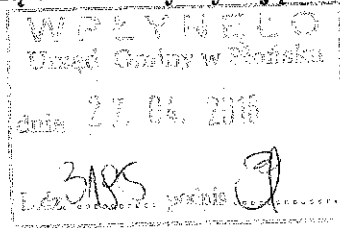 WPŁYNĘŁO
Urząd Gminy w Płońsku
dnia 27. 04. 2016
L.dz. 3185 podpis